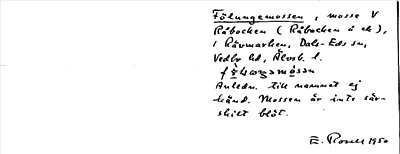 Fölungemossen, mosse V
Råbocken (Råbocken i ek),
i Håvmarken, Dals-Eds sn,
Vedbo hd, Älvsb. l.
Anledn. till namnet ej
känd. Mossen är inte sär-
skilt blöt.
E. Rosell 1950